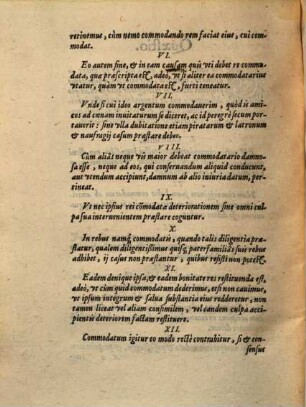 retinemus, cùm nemo commodando rem faciat eius, cui commodat.
VI.
Eo autem fine, & in eam causam quis uti debet re commodata, quæ præscripta est, adeò, ut si aliter ea commodatarius
utatur, quàm ut commodata est, furti teneatur.
VII.
Vnde si cui ideo argentum commodauerim, quòd is amicos ad cœnam inuitaturum se diceret, ac id peregrè secum portauerit: sine ulla dubitatione etiam piratarum & latronum
& naufragij casum præstare debet.
VIII.
Cùm aliàs neque vis maior debeat commodatario damnosa esse, neque ad eos, qui conseruandum aliquid conducunt,
aut utendum accipiunt, damnum ab alio iniuria datum, pertineat.
IX.
Vt nec ipsius rei cōmodatæ deteriorationem sine omni culpa sua interuenientem præstare coguntur.
X.
In rebus namq; commodatis, quando talis diligentia præstatur, qualem diligentissimus quisq; paterfamiliâs suis rebus
adhibet, ij casus non præstantur, quibus resisti non potest.
XI.
Eadem denique ipsa, & eadem bonitate res restituenda est,
adeò, ut cùm quid commodatum dederimus, etsi non cauimus,
ut ipsum integrum & salua substantia eius redderetur, non
tamen liceat vel aliam consimilem, vel eandem culpa accipientis deteriorem factam restituere.
XII.
Commodatum igitur eo modo rectè contrahitur, si & consensus